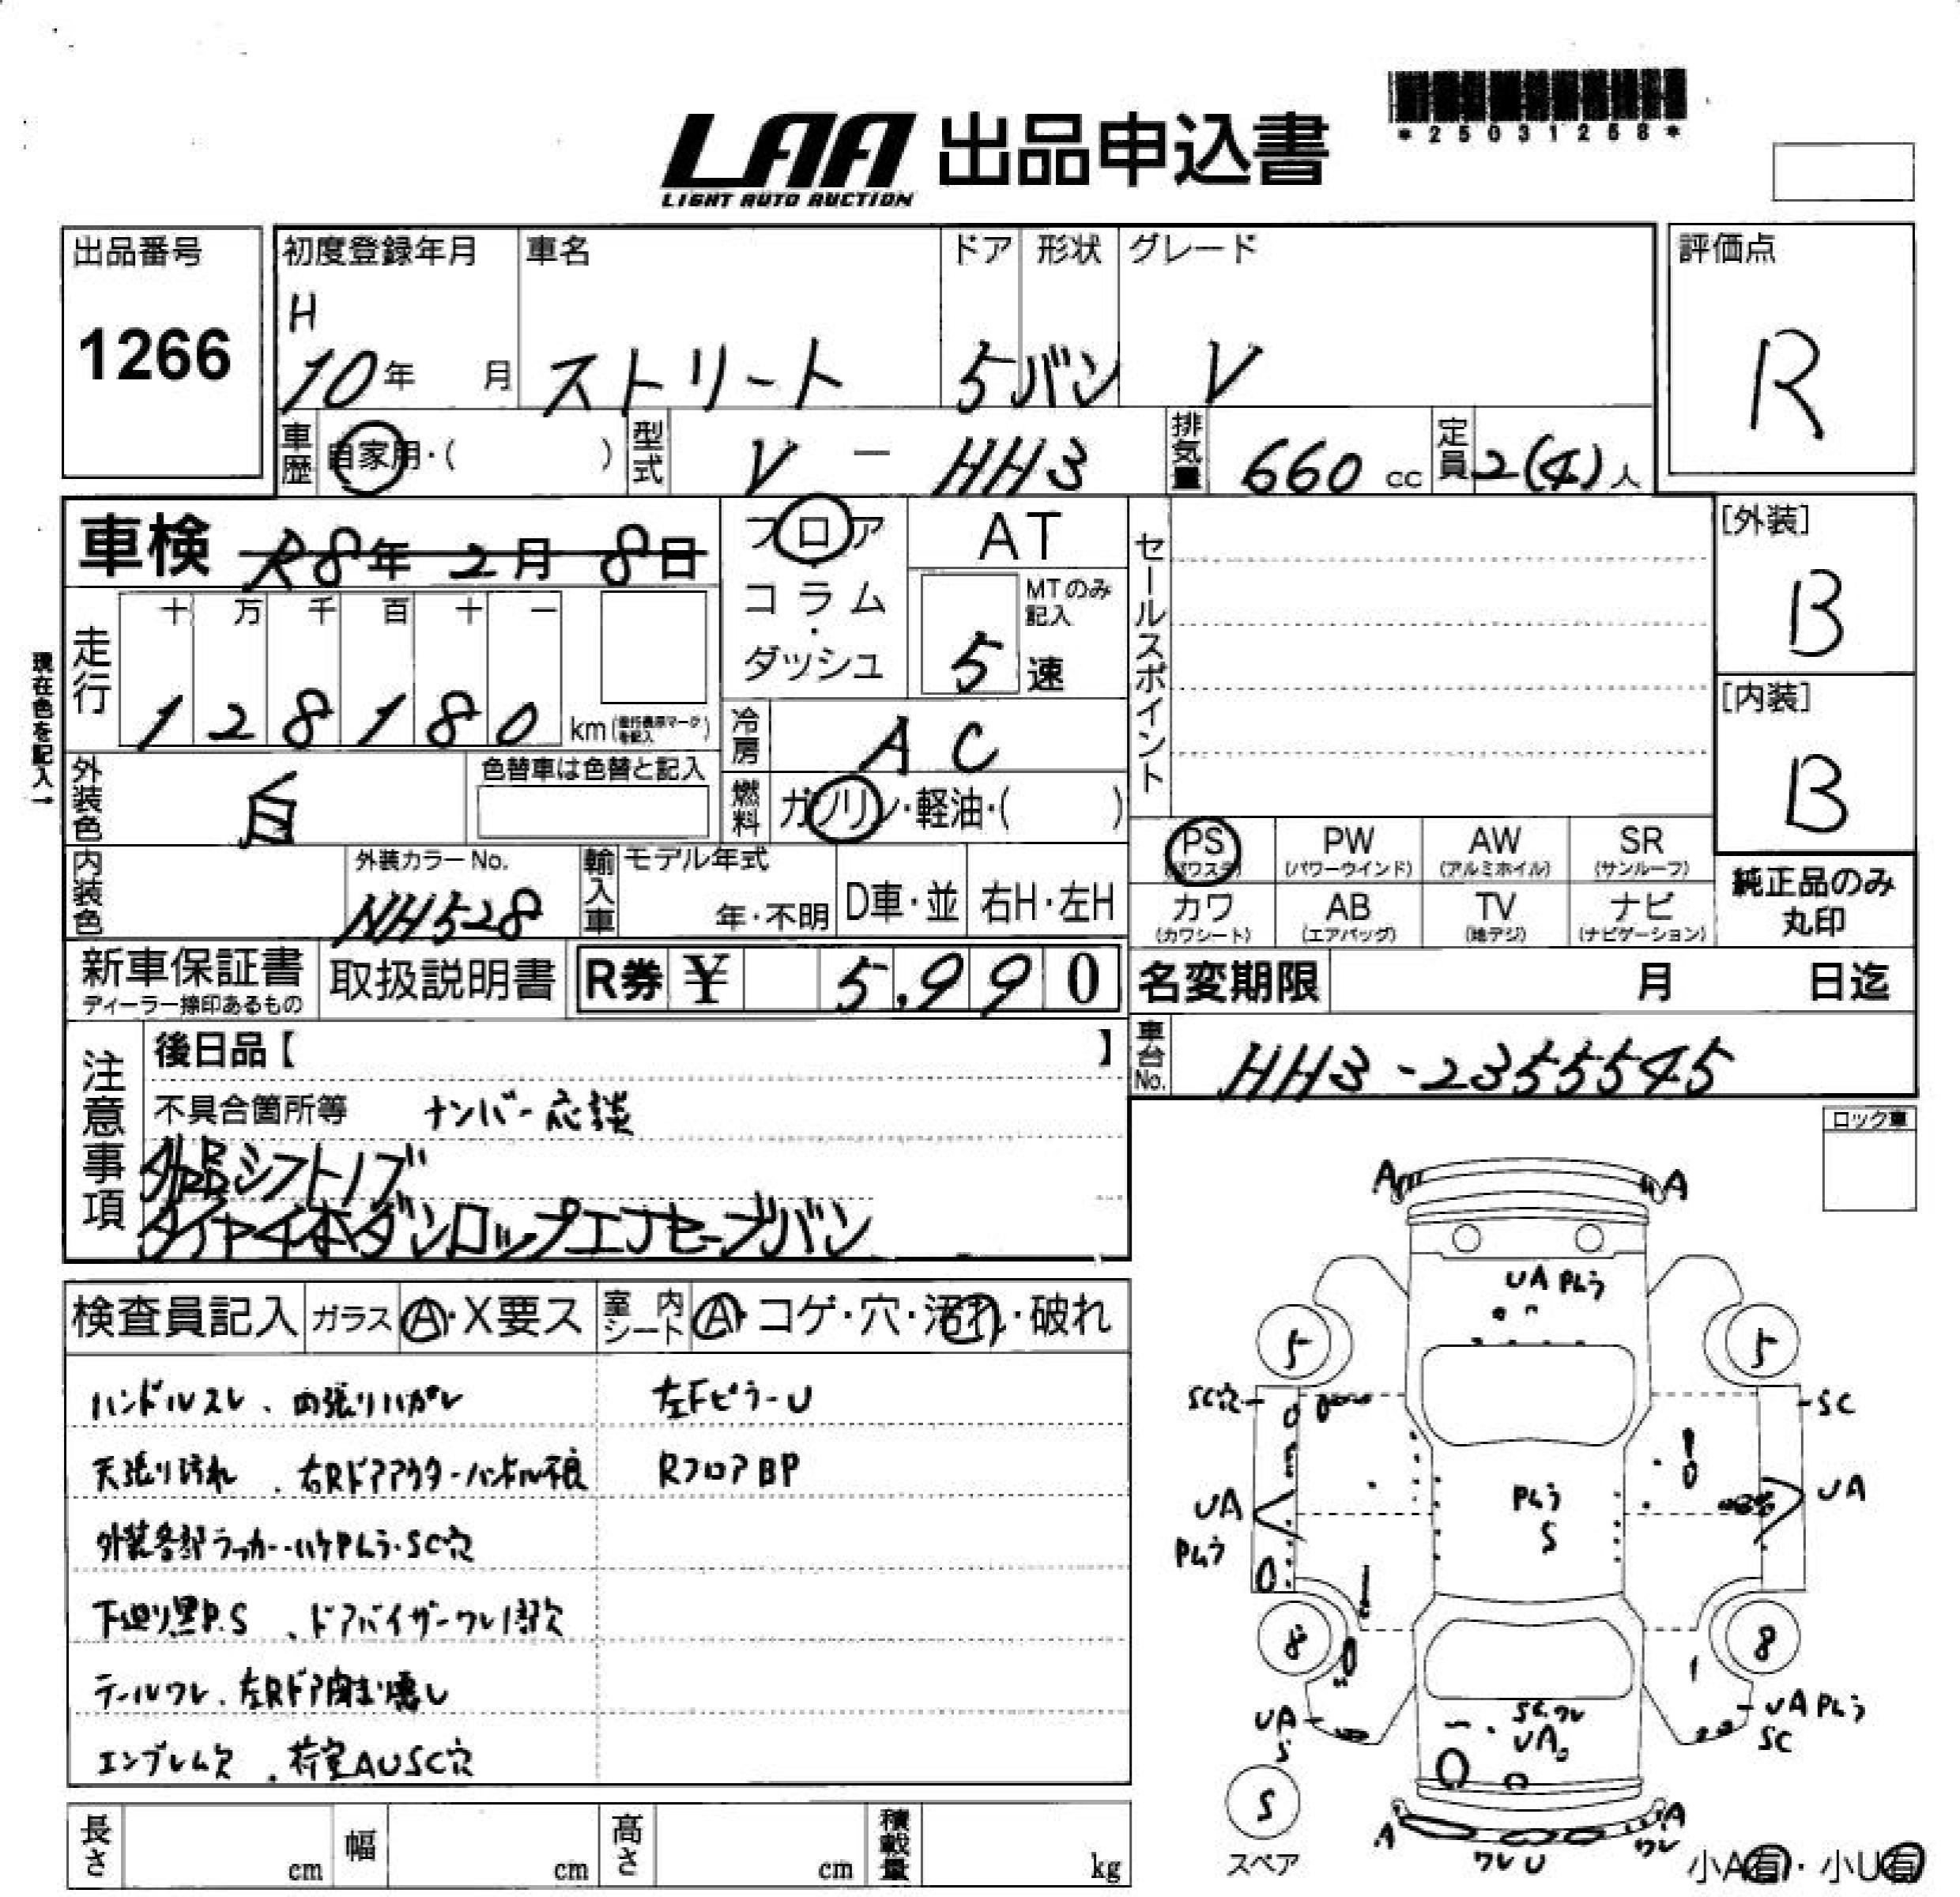 *25031268*
LAA 出品申込書
LIGHT AUTO AUCTION
出品番号
1266
初度登録年月 車名 ドア 形状 グレード
H
10年 月 ストリート 5 バン V
評価点
R
車歴 自家用・( ) 型式 V - HH3 排気量 660 cc 定員 2(4)人
車検 R8年 2月 8日
フロア・コラム・ダッシュ
AT
MTのみ記入
5 速
セールスポイント
[外装]
B
[内装]
B
現在色を記入→
走行
十 万 千 百 十 一
1 2 8 1 8 0 km
冷房 AC
外装色 白
色替車は色替と記入
燃料 ガソリン・軽油・( )
内装色
外装カラーNo.
NH528
輸入車 モデル年式
年・不明 D車・並 右H・左H
PS (パワステ) PW (パワーウインド) AW (アルミホイル) SR (サンルーフ)
カワ (カワシート) AB (エアバッグ) TV (地デジ) ナビ (ナビゲーション)
純正品のみ
丸印
新車保証書
ディーラー捺印あるもの
取扱説明書
R券 ¥ 5,990
名変期限 月 日迄
車台No. HH3-2355545
注意事項
後日品【 】
不具合箇所等 ナンバー応談
外品シフトノブ
タイヤ4本ダンロップエナセーブバン
ロック車
検査員記入 ガラス A・X要ス 室内シート A・コゲ・穴・汚れ・破れ
ハンドルスレ、内張りハガレ 左FピラーU
天張り汚れ、右Rドアアウターハンドル不良 RフロアBP
外装各部ラッカー・ハケPムラ・SC穴
下廻り黒P.S、ドアバイザーワレ1部欠
テールワレ、左Rドア閉まり悪し
エンブレム欠、荷室AUSC穴
A A
UA Pムラ
5 5
SC穴 SC
UA UA
Pムラ
Pムラ
S
8 8
UA
S
SC.ワレ
UA
UA Pムラ
SC
S
スペア
A A
ワレU ワレ
小A有・小U有
長さ cm 幅 cm 高さ cm 積載量 kg